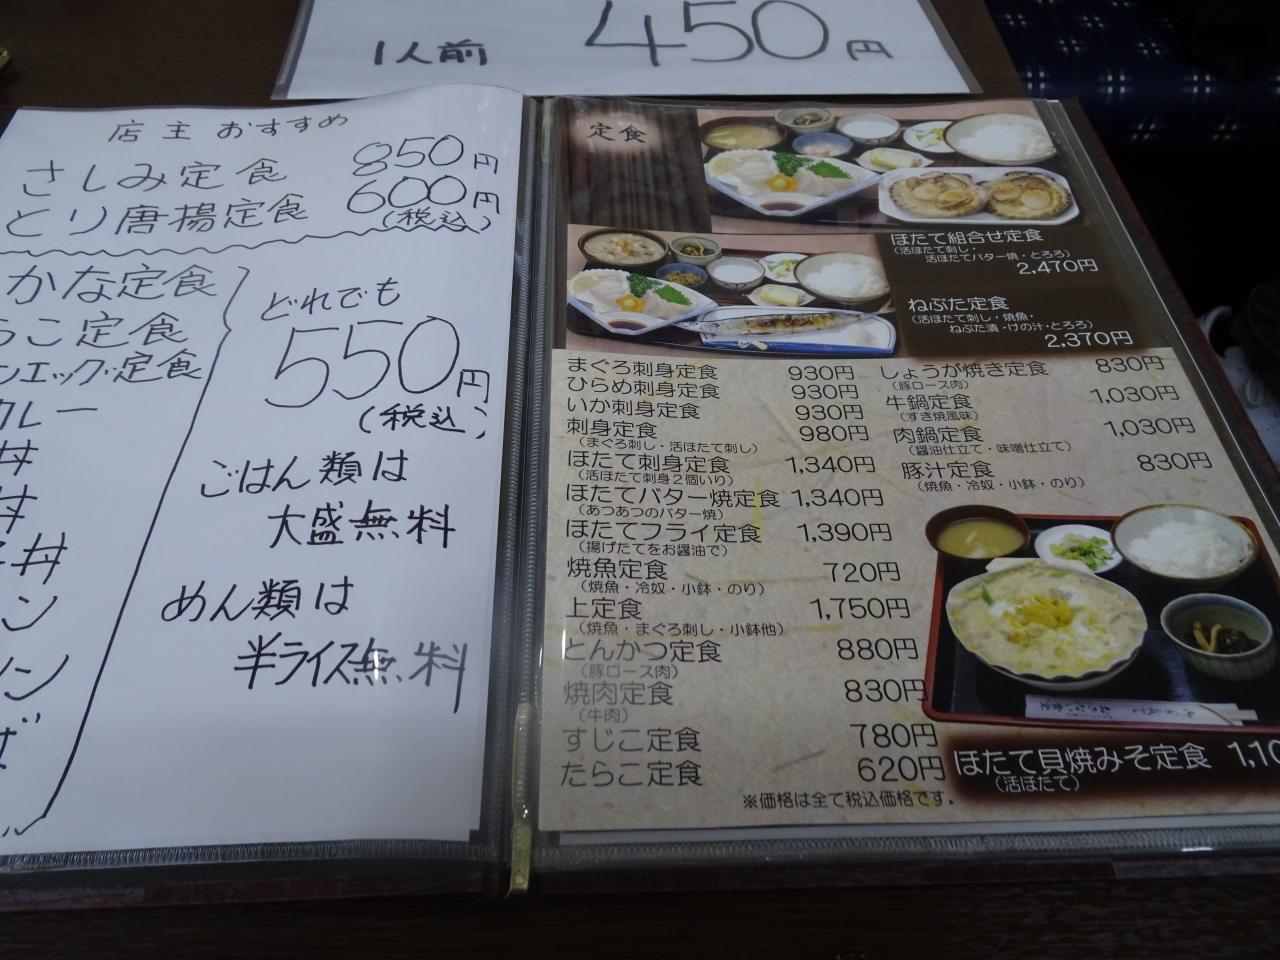 1人前 450円
店主 おすすめ
さしみ定食 850円
とり唐揚定食 600円
(税込)
かな定食
こ定食
エッグ定食
カレー
丼
丼
丼
ン
ン
ば
どれでも
550円
(税込)
ごはん類は
大盛無料
めん類は
半ライス無料
定食
ほたて組合せ定食
(活ほたて刺し・
活ほたてバター焼・とろろ)
2,470円
ねぶた定食
(活ほたて刺し・焼魚・
ねぶた漬・けの汁・とろろ)
2,370円
まぐろ刺身定食 930円
ひらめ刺身定食 930円
いか刺身定食 930円
刺身定食 980円
(まぐろ刺し・活ほたて刺し)
ほたて刺身定食 1,340円
(活ほたて刺身2個いり)
ほたてバター焼定食 1,340円
(あつあつのバター焼)
ほたてフライ定食 1,390円
(揚げたてをお醤油で)
焼魚定食 720円
(焼魚・冷奴・小鉢・のり)
上定食 1,750円
(焼魚・まぐろ刺し・小鉢他)
とんかつ定食 880円
(豚ロース肉)
焼肉定食 830円
(牛肉)
すじこ定食 780円
たらこ定食 620円
※価格は全て税込価格です。
しょうが焼き定食 830円
(豚ロース肉)
牛鍋定食 1,030円
(すき焼風味)
肉鍋定食 1,030円
(醤油仕立て・味噌仕立て)
豚汁定食 830円
(焼魚・冷奴・小鉢・のり)
ほたて貝焼みそ定食 1,10
(活ほたて)